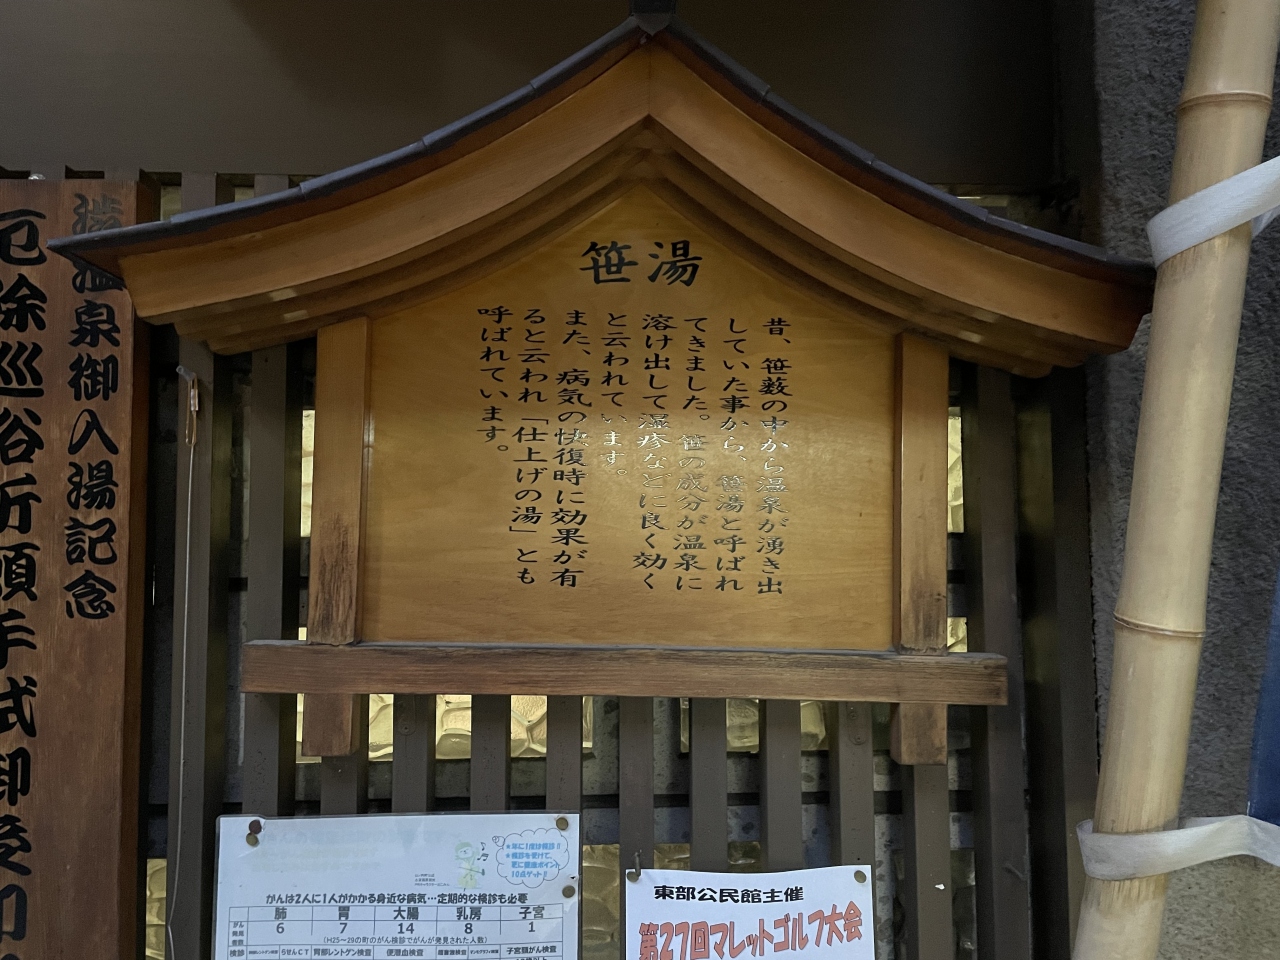 笹湯
昔、笹薮の中から温泉が湧き出
していた事から、笹湯と呼ばれ
てきました。笹の成分が温泉に
溶け出して湿疹などに良く効く
と云われています。
また、病気の快復時に効果が有
ると云われ「仕上げの湯」とも
呼ばれています。
渋温泉御入湯記念
厄除巡浴祈願手拭御受印
★年に1度は検診!!
★検診を受けて、
更に健康ポイント
10点ゲット!!
がんは2人に1人がかかる身近な病気…定期的な検診も必要
肺 胃 大腸 乳房 子宮
がん発見者数 6 7 14 8 1
(H25～29の町のがん検診でがんが発見された人数)
検診 らせんCT 胃部レントゲン検査 便潜血検査 子宮頸がん検査
東部公民館主催
第27回マレットゴルフ大会